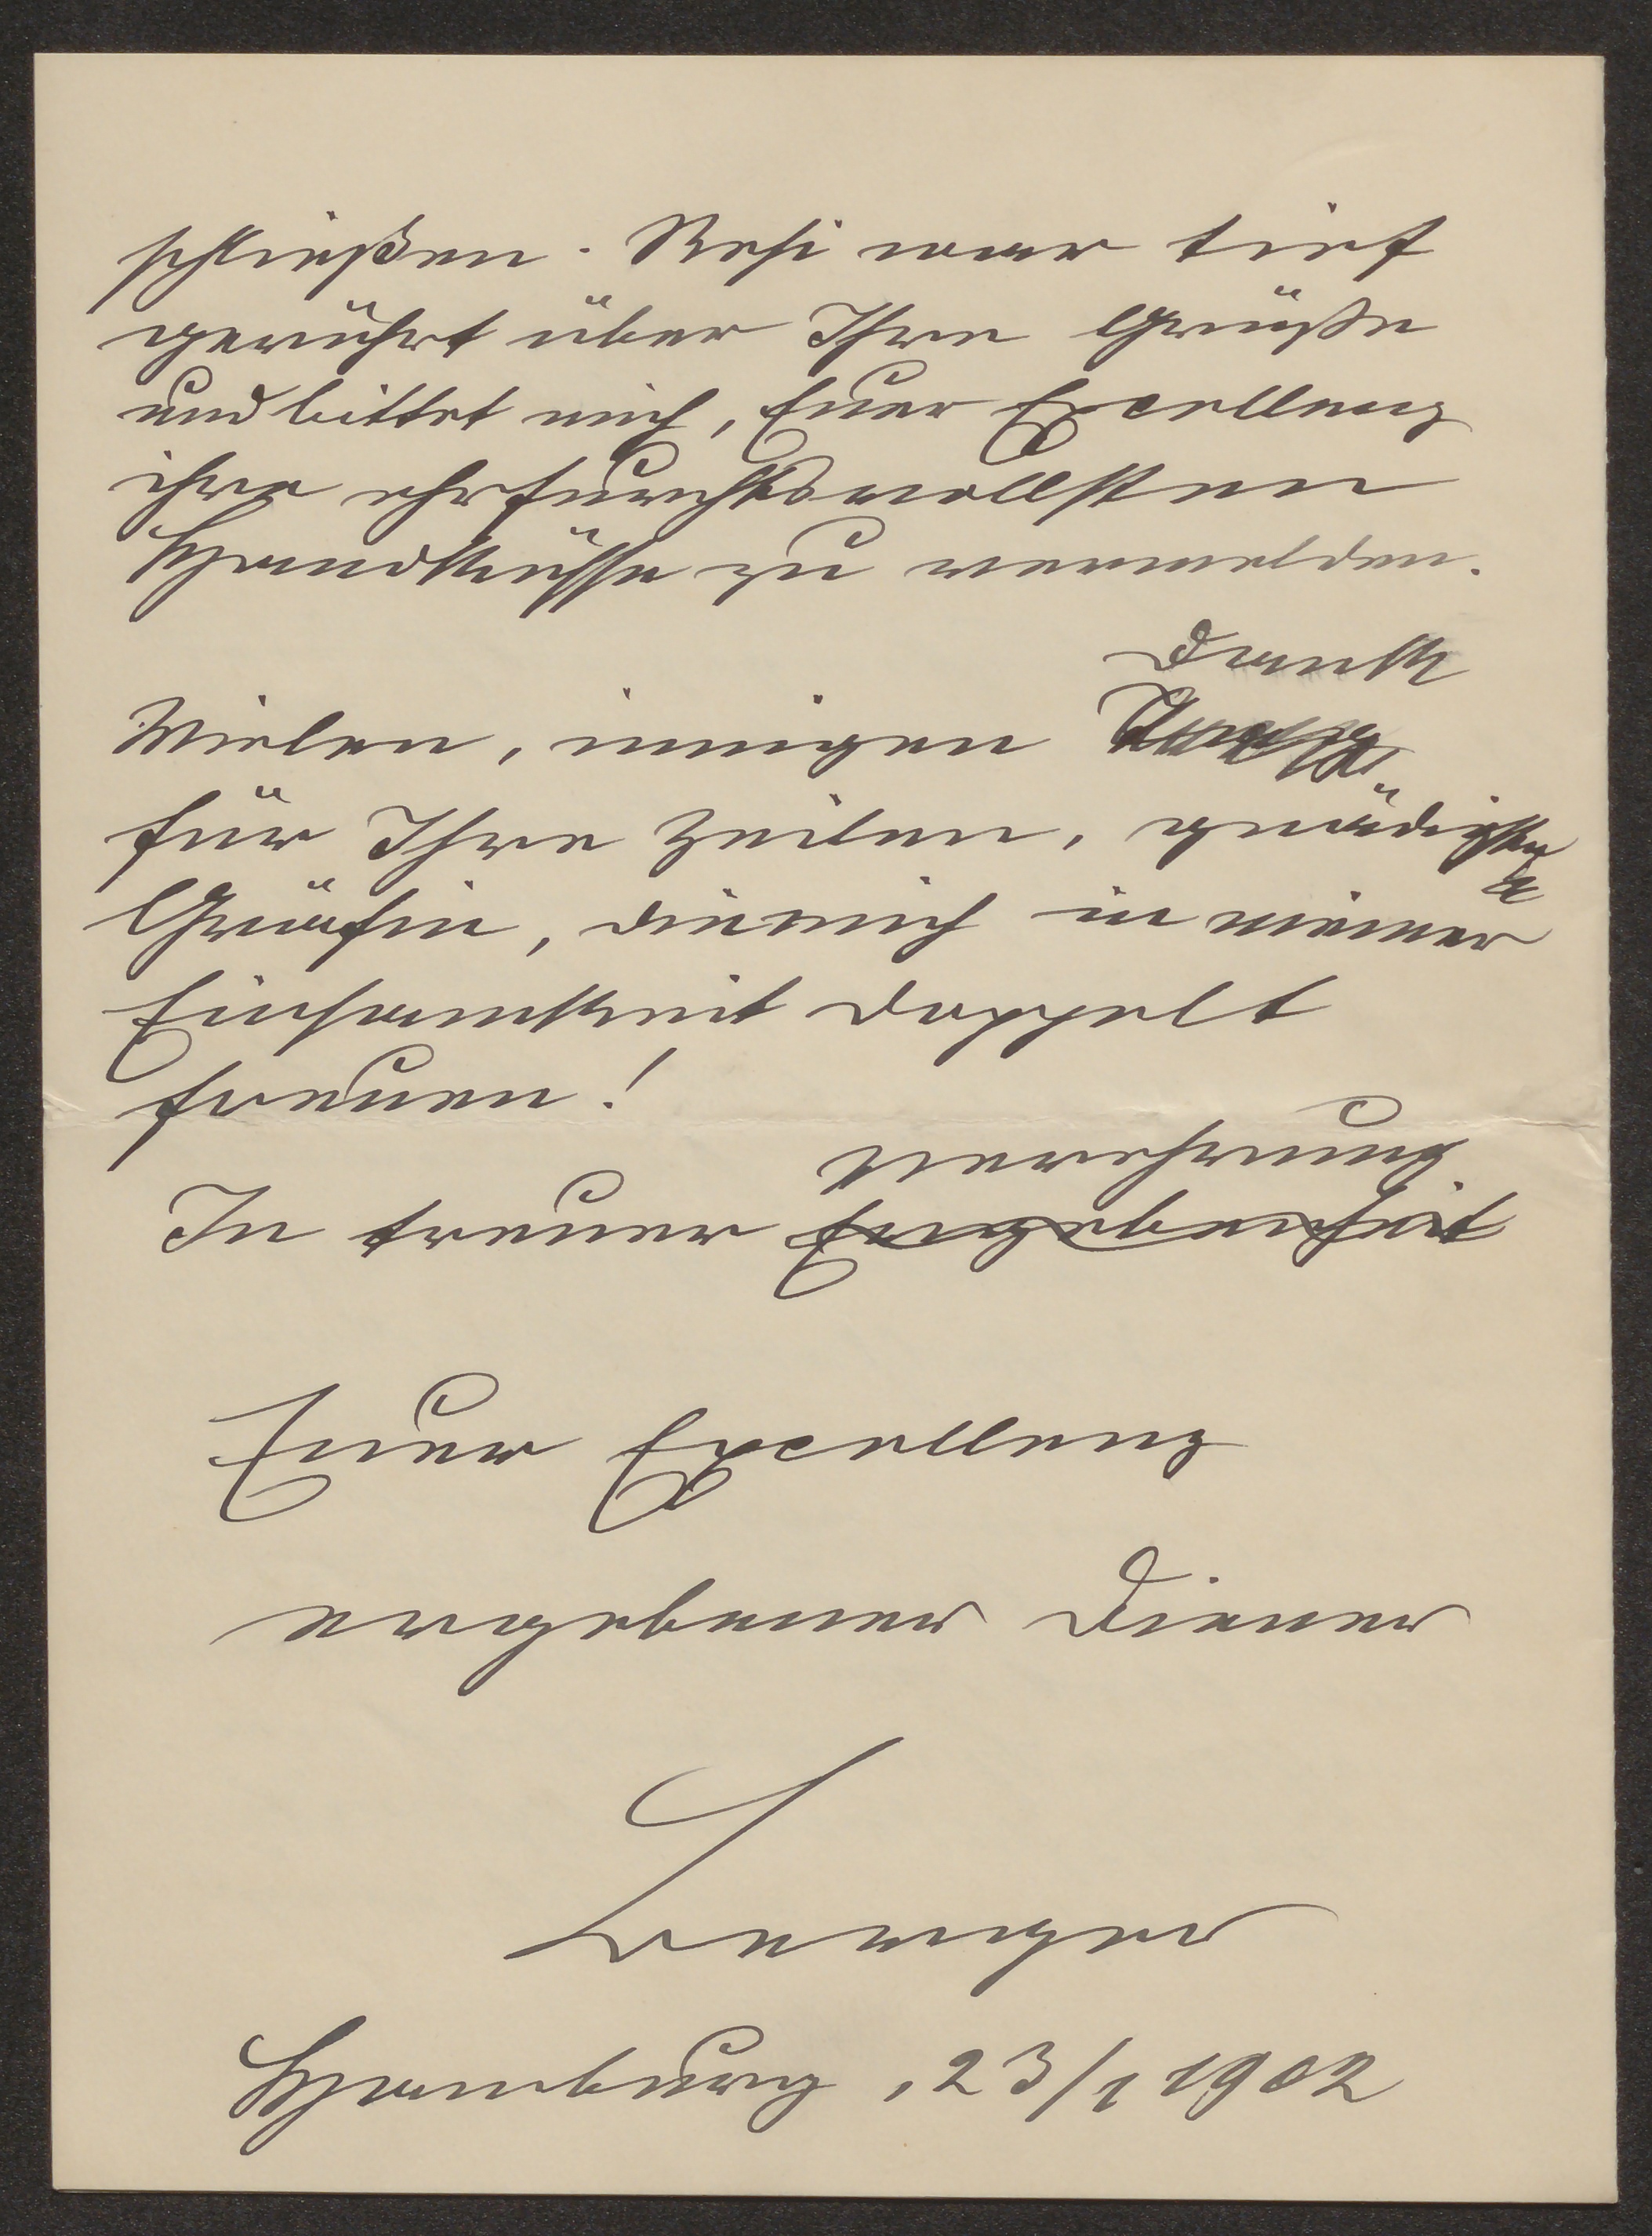 schließen. Resi war tief
gerührt über Ihre Grüße
und bittet mich, Euer Excellenz
ihre ehrfurchtsvollsten
Handküsse zu vermelden.
Dank
Vielen, innigen
für Ihre Zeilen, gnädigste
Gräfin, die mich in meiner
Einsamkeit doppelt
freuen!
Verehrung
In treuer Ergebenheit
Euer Excellenz
ergebener Diener
Hamburg, 23/1 1902